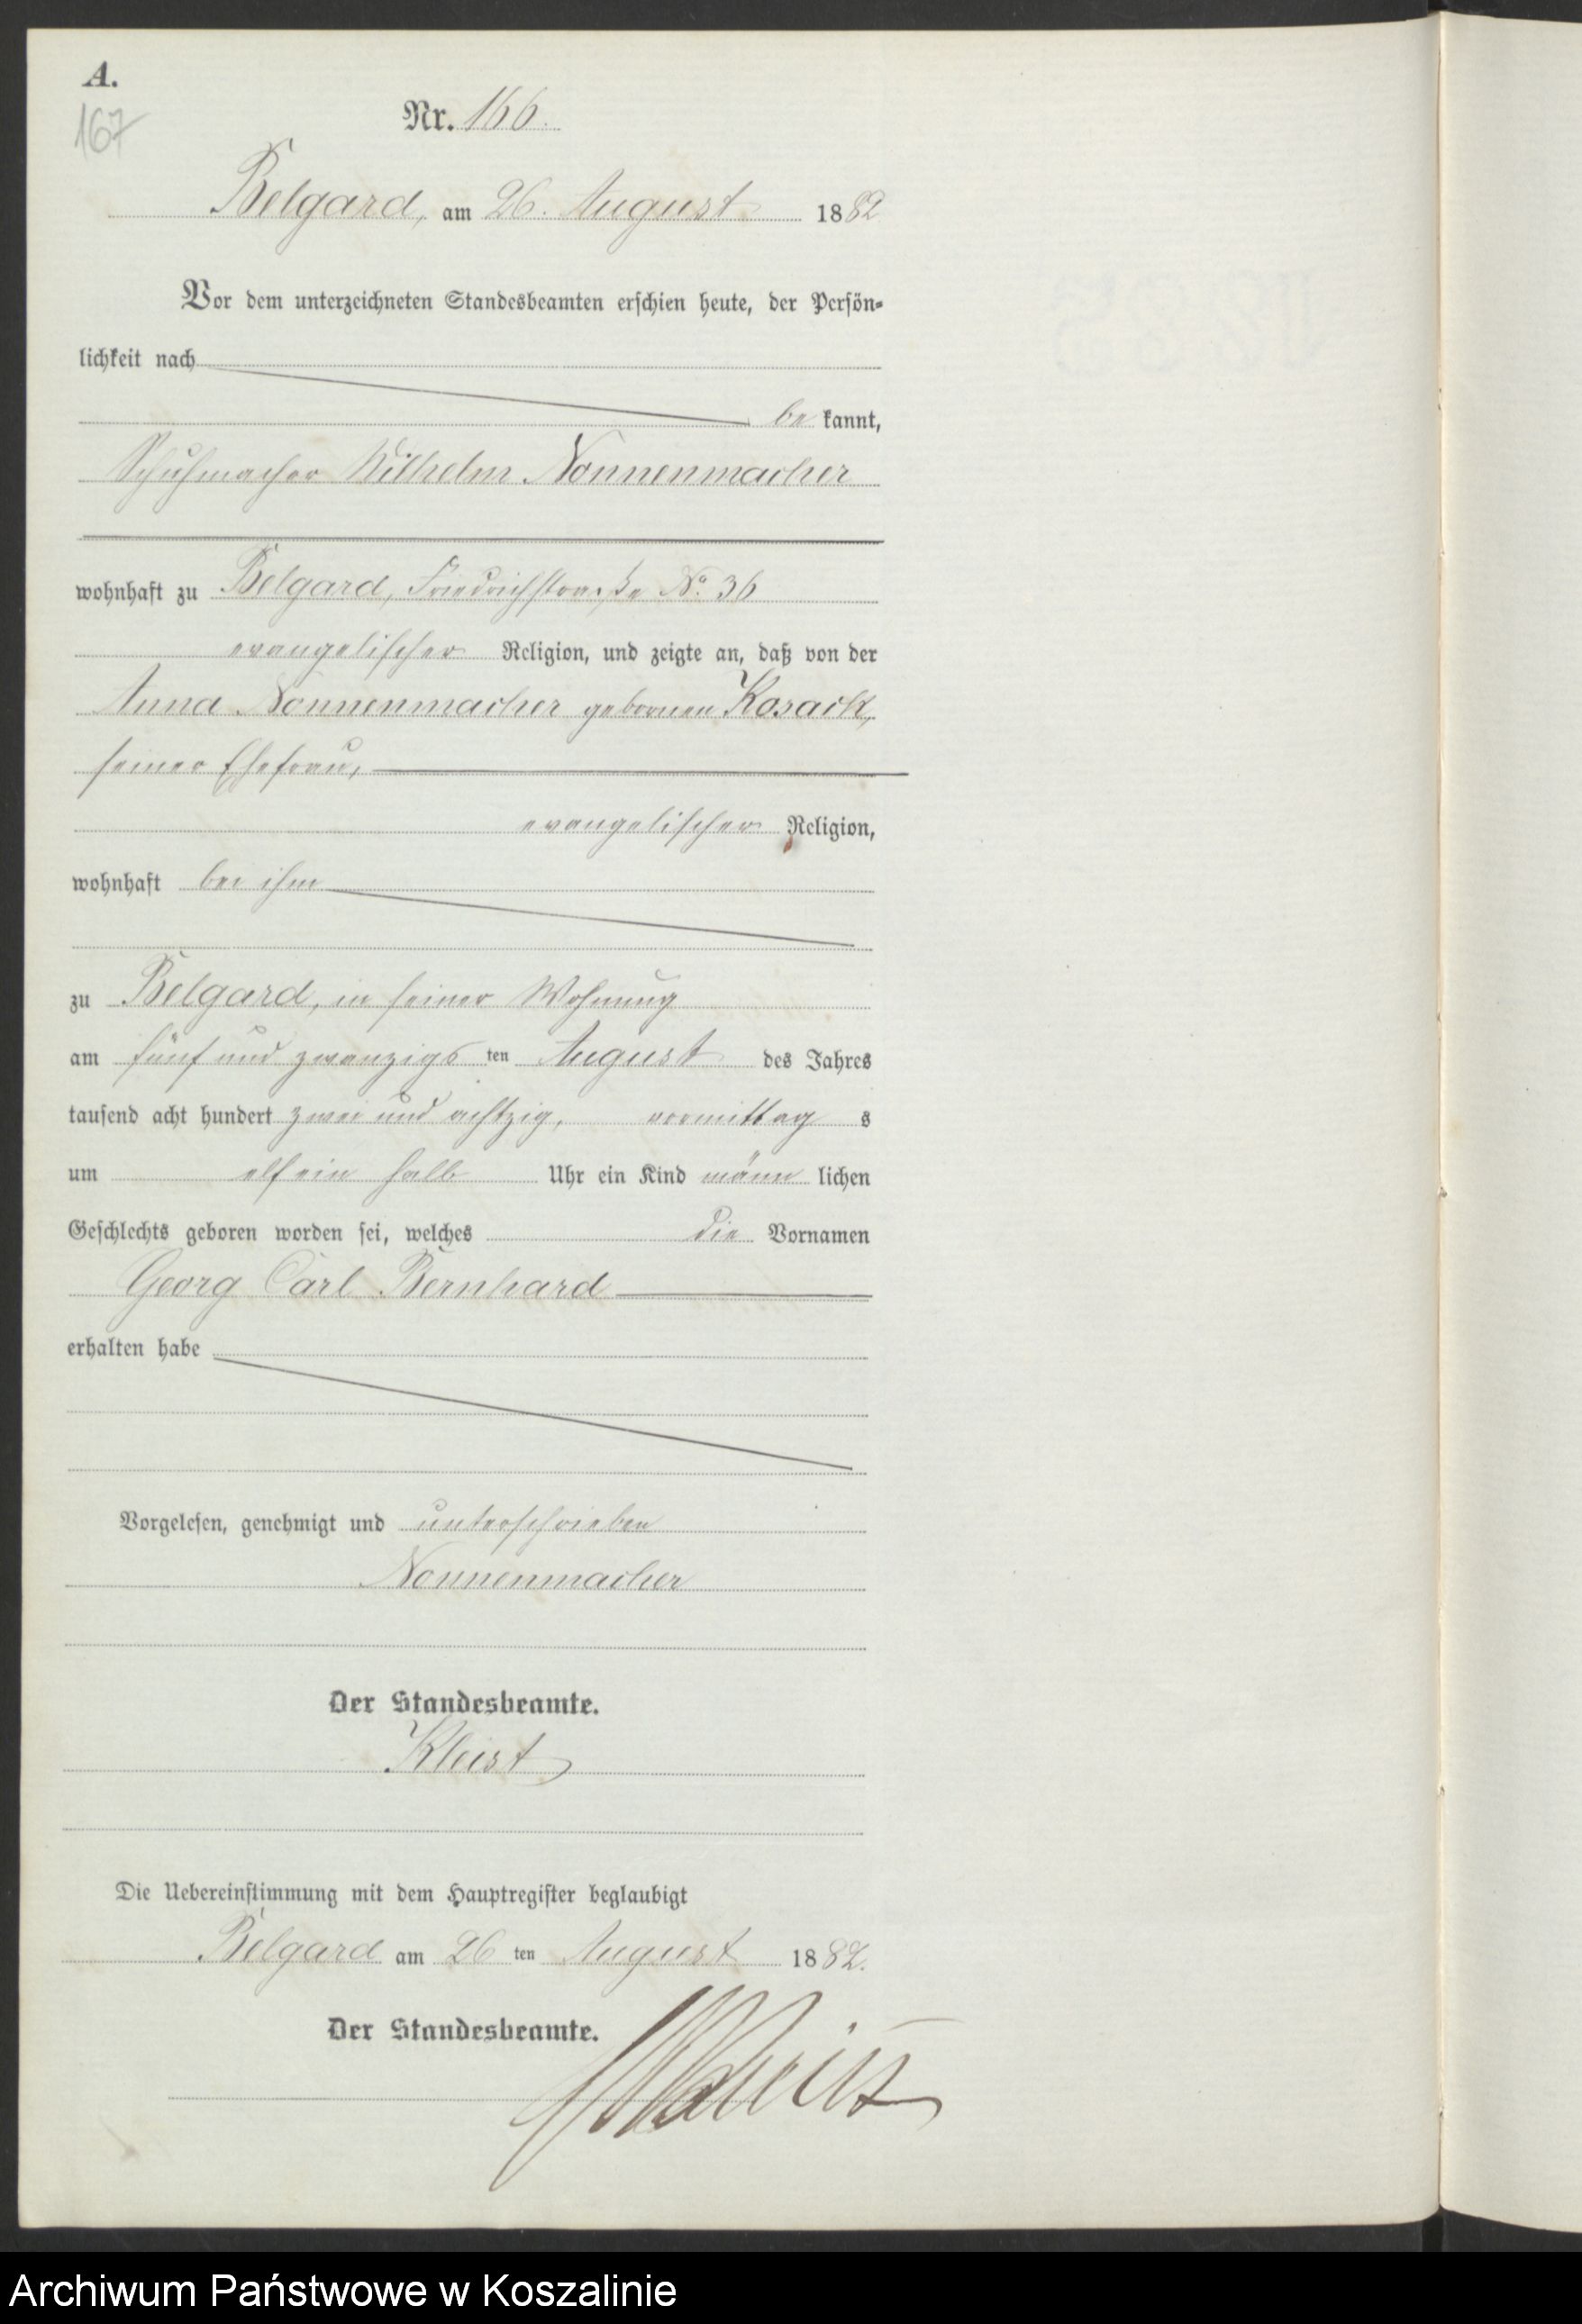 A.
167
Nr. 166.
Belgard, am 26. August 1882
Vor dem unterzeichneten Standesbeamten erschien heute, der Persön-
lichkeit nach
be kannt,
Schuhmacher Wilhelm Nonnenmacher
wohnhaft zu Belgard, Friedrichstraße No. 36
evangelischer Religion, und zeigte an, daß von der
Anna Nonnenmacher gebornen Kosack,
seiner Ehefrau,
evangelischer Religion,
wohnhaft bei ihm
zu Belgard, in seiner Wohnung
am fünf und zwanzigs ten August des Jahres
tausend acht hundert zwei und achtzig, vormittag s
um elf ein halb Uhr ein Kind männ lichen
Geschlechts geboren worden sei, welches die Vornamen
Georg Carl Bernhard
erhalten habe
Vorgelesen, genehmigt und unterschrieben
Nonnenmacher
Der Standesbeamte.
Kleist
Die Uebereinstimmung mit dem Hauptregister beglaubigt
Belgard am 26 ten August 1882.
Der Standesbeamte.
Archiwum Państwowe w Koszalinie